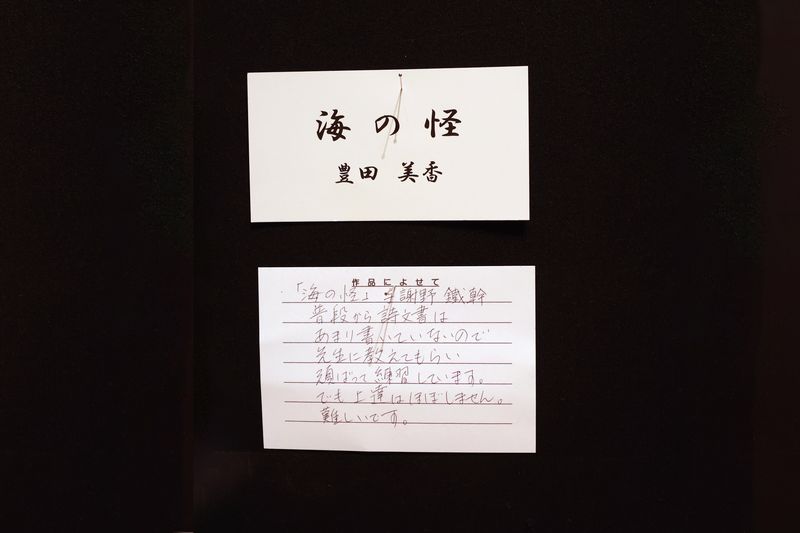 海の怪
豊田 美香
作品によせて
「海の怪」 与謝野 鐵幹
普段から詩文書は
あまり書いていないので
先生に教えてもらい
頑ばって練習しています。
でも上達はほぼしません。
難しいです。